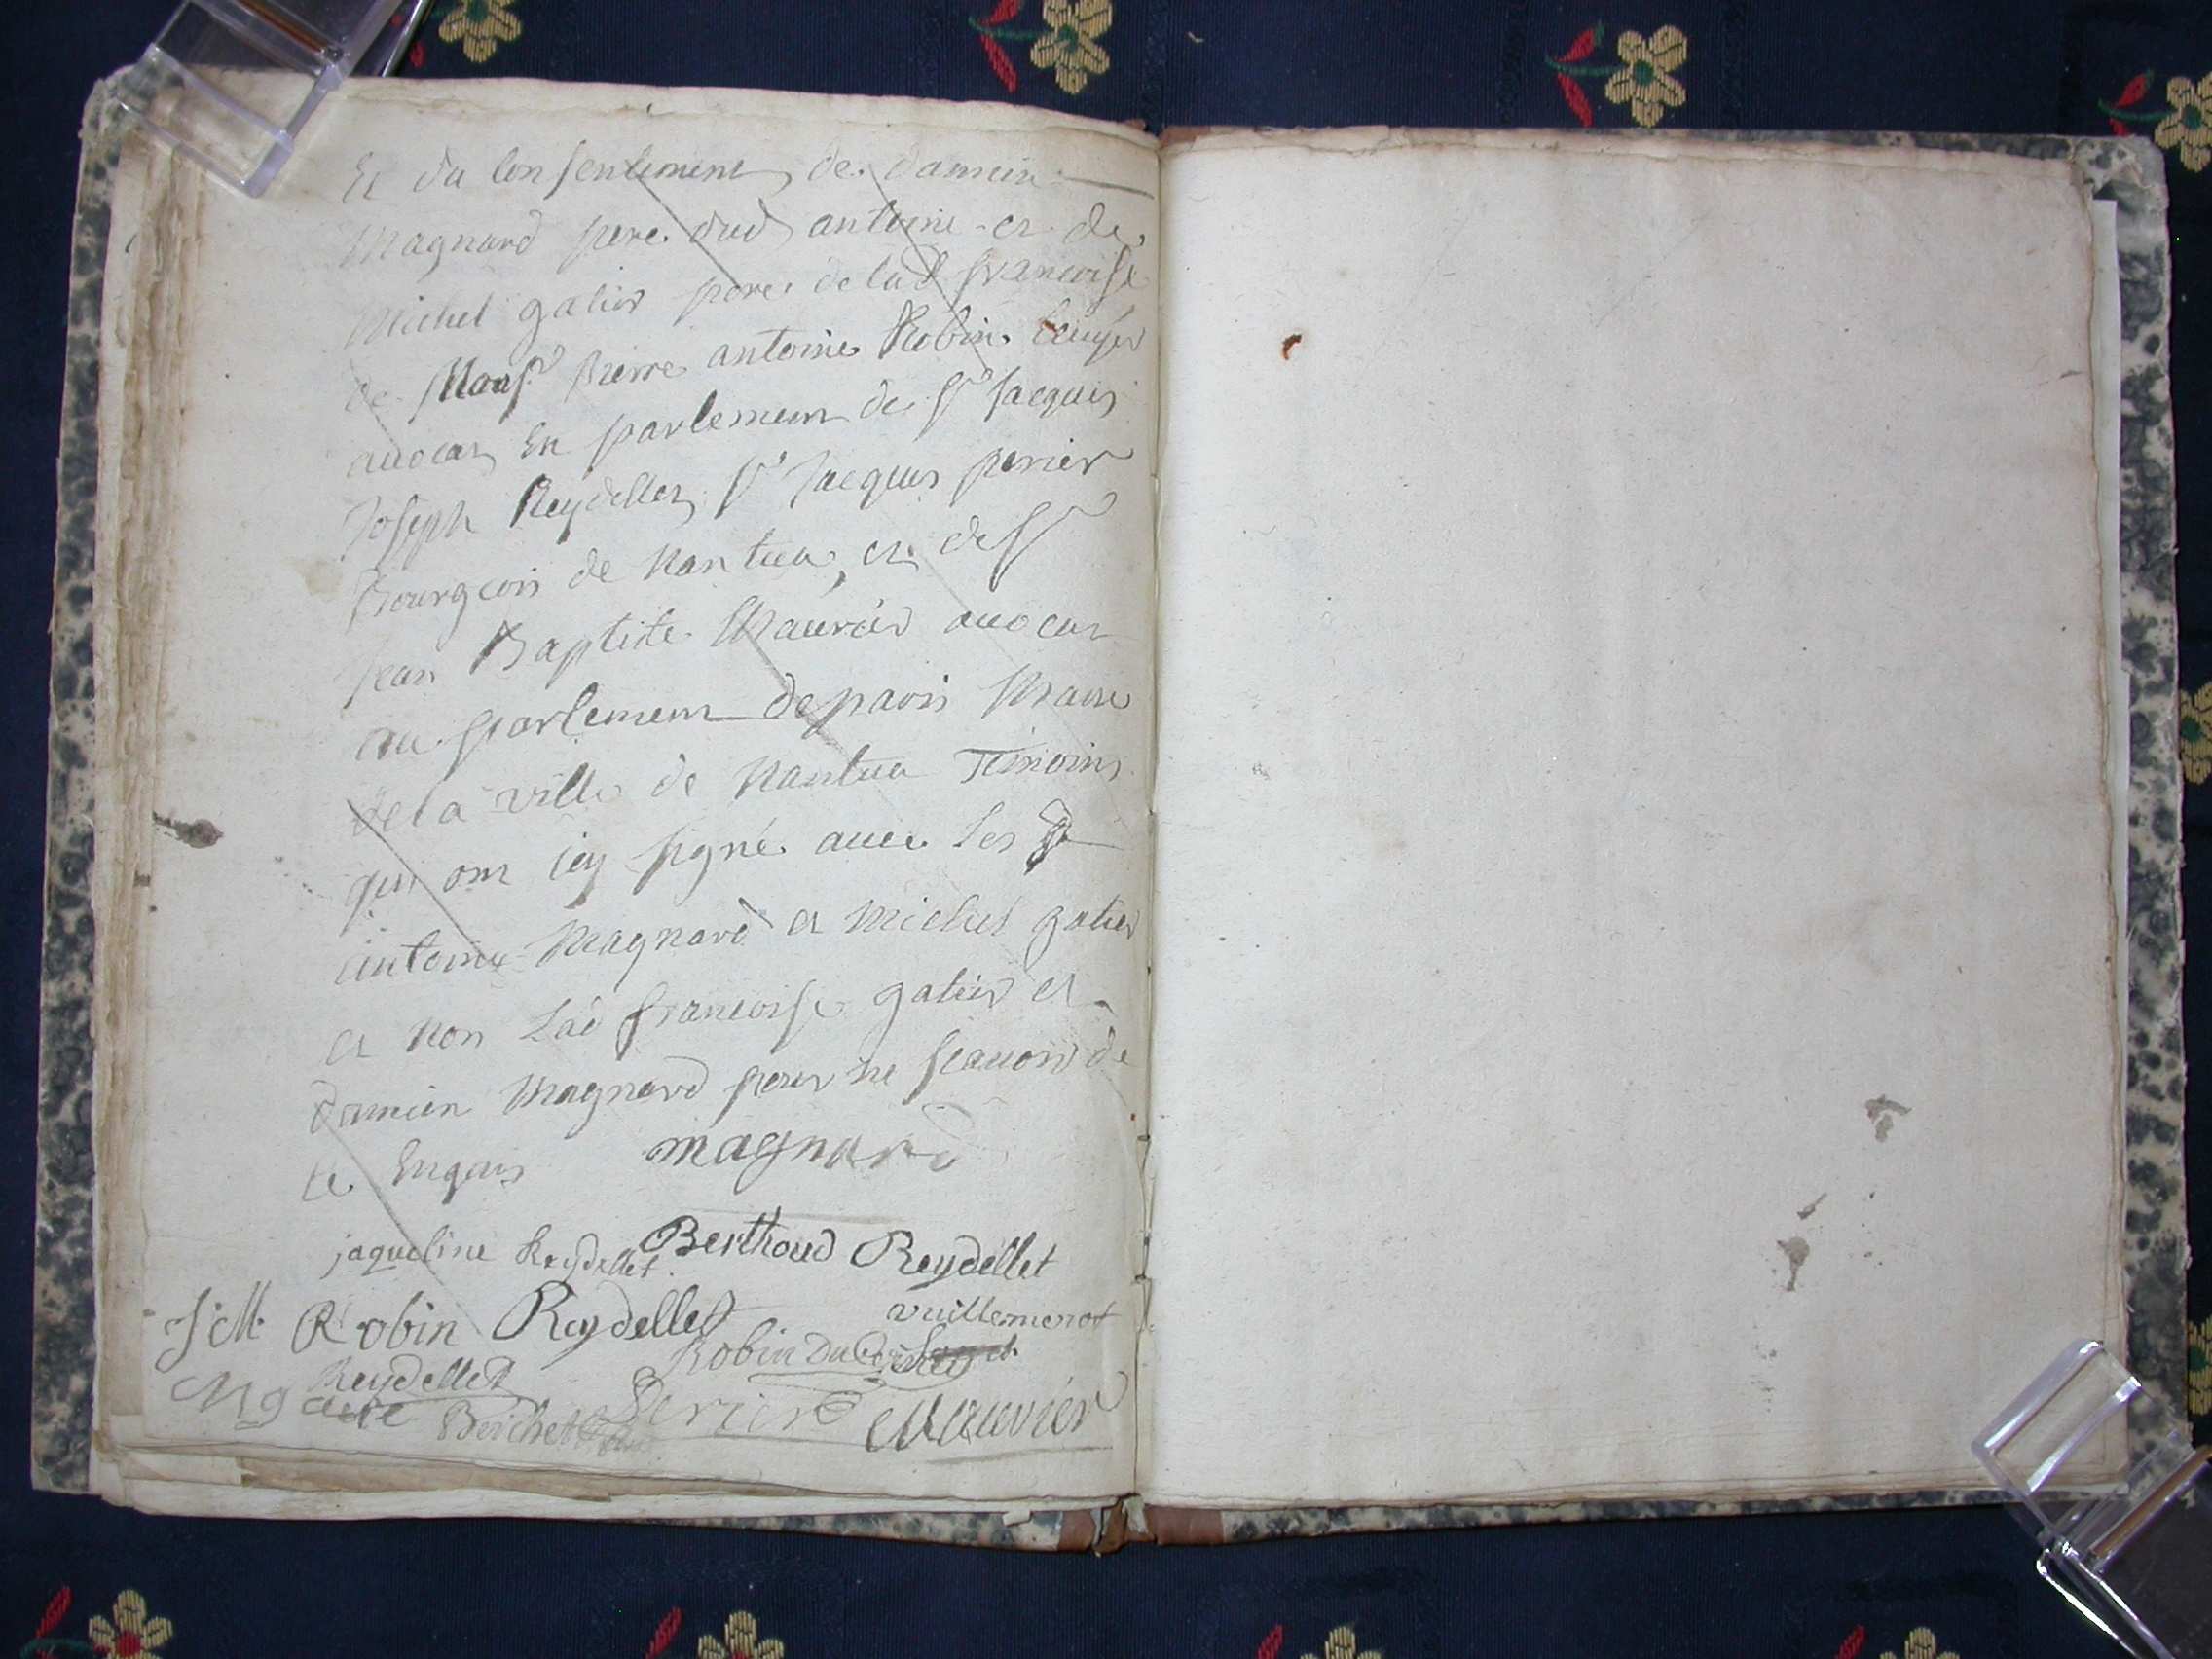 Et du consentement de damien
magnard pere dud antoine et de
michel galier pere de lad francoise
de Monsr pierre antoine Robin Ecuyer
auocat En parlement de sr jacques
Joseph Reydellet sr jacques perier
Bourgeois de nantua, et de sr
jean Baptiste Mauvier auocat
au parlement de paris Maire
de la ville de nantua Témoins
qui ont icy signé auec les
antoine magnard et michel galier
et non lad francoise galier et
damien magnard pour ne scauoir de
ce Enquis magnard
jaqueline Reydellet Berthoud Reydellet
J M Robin Reydellet vuillemenot
Reydellet Robin
Berchet perier Mauvier